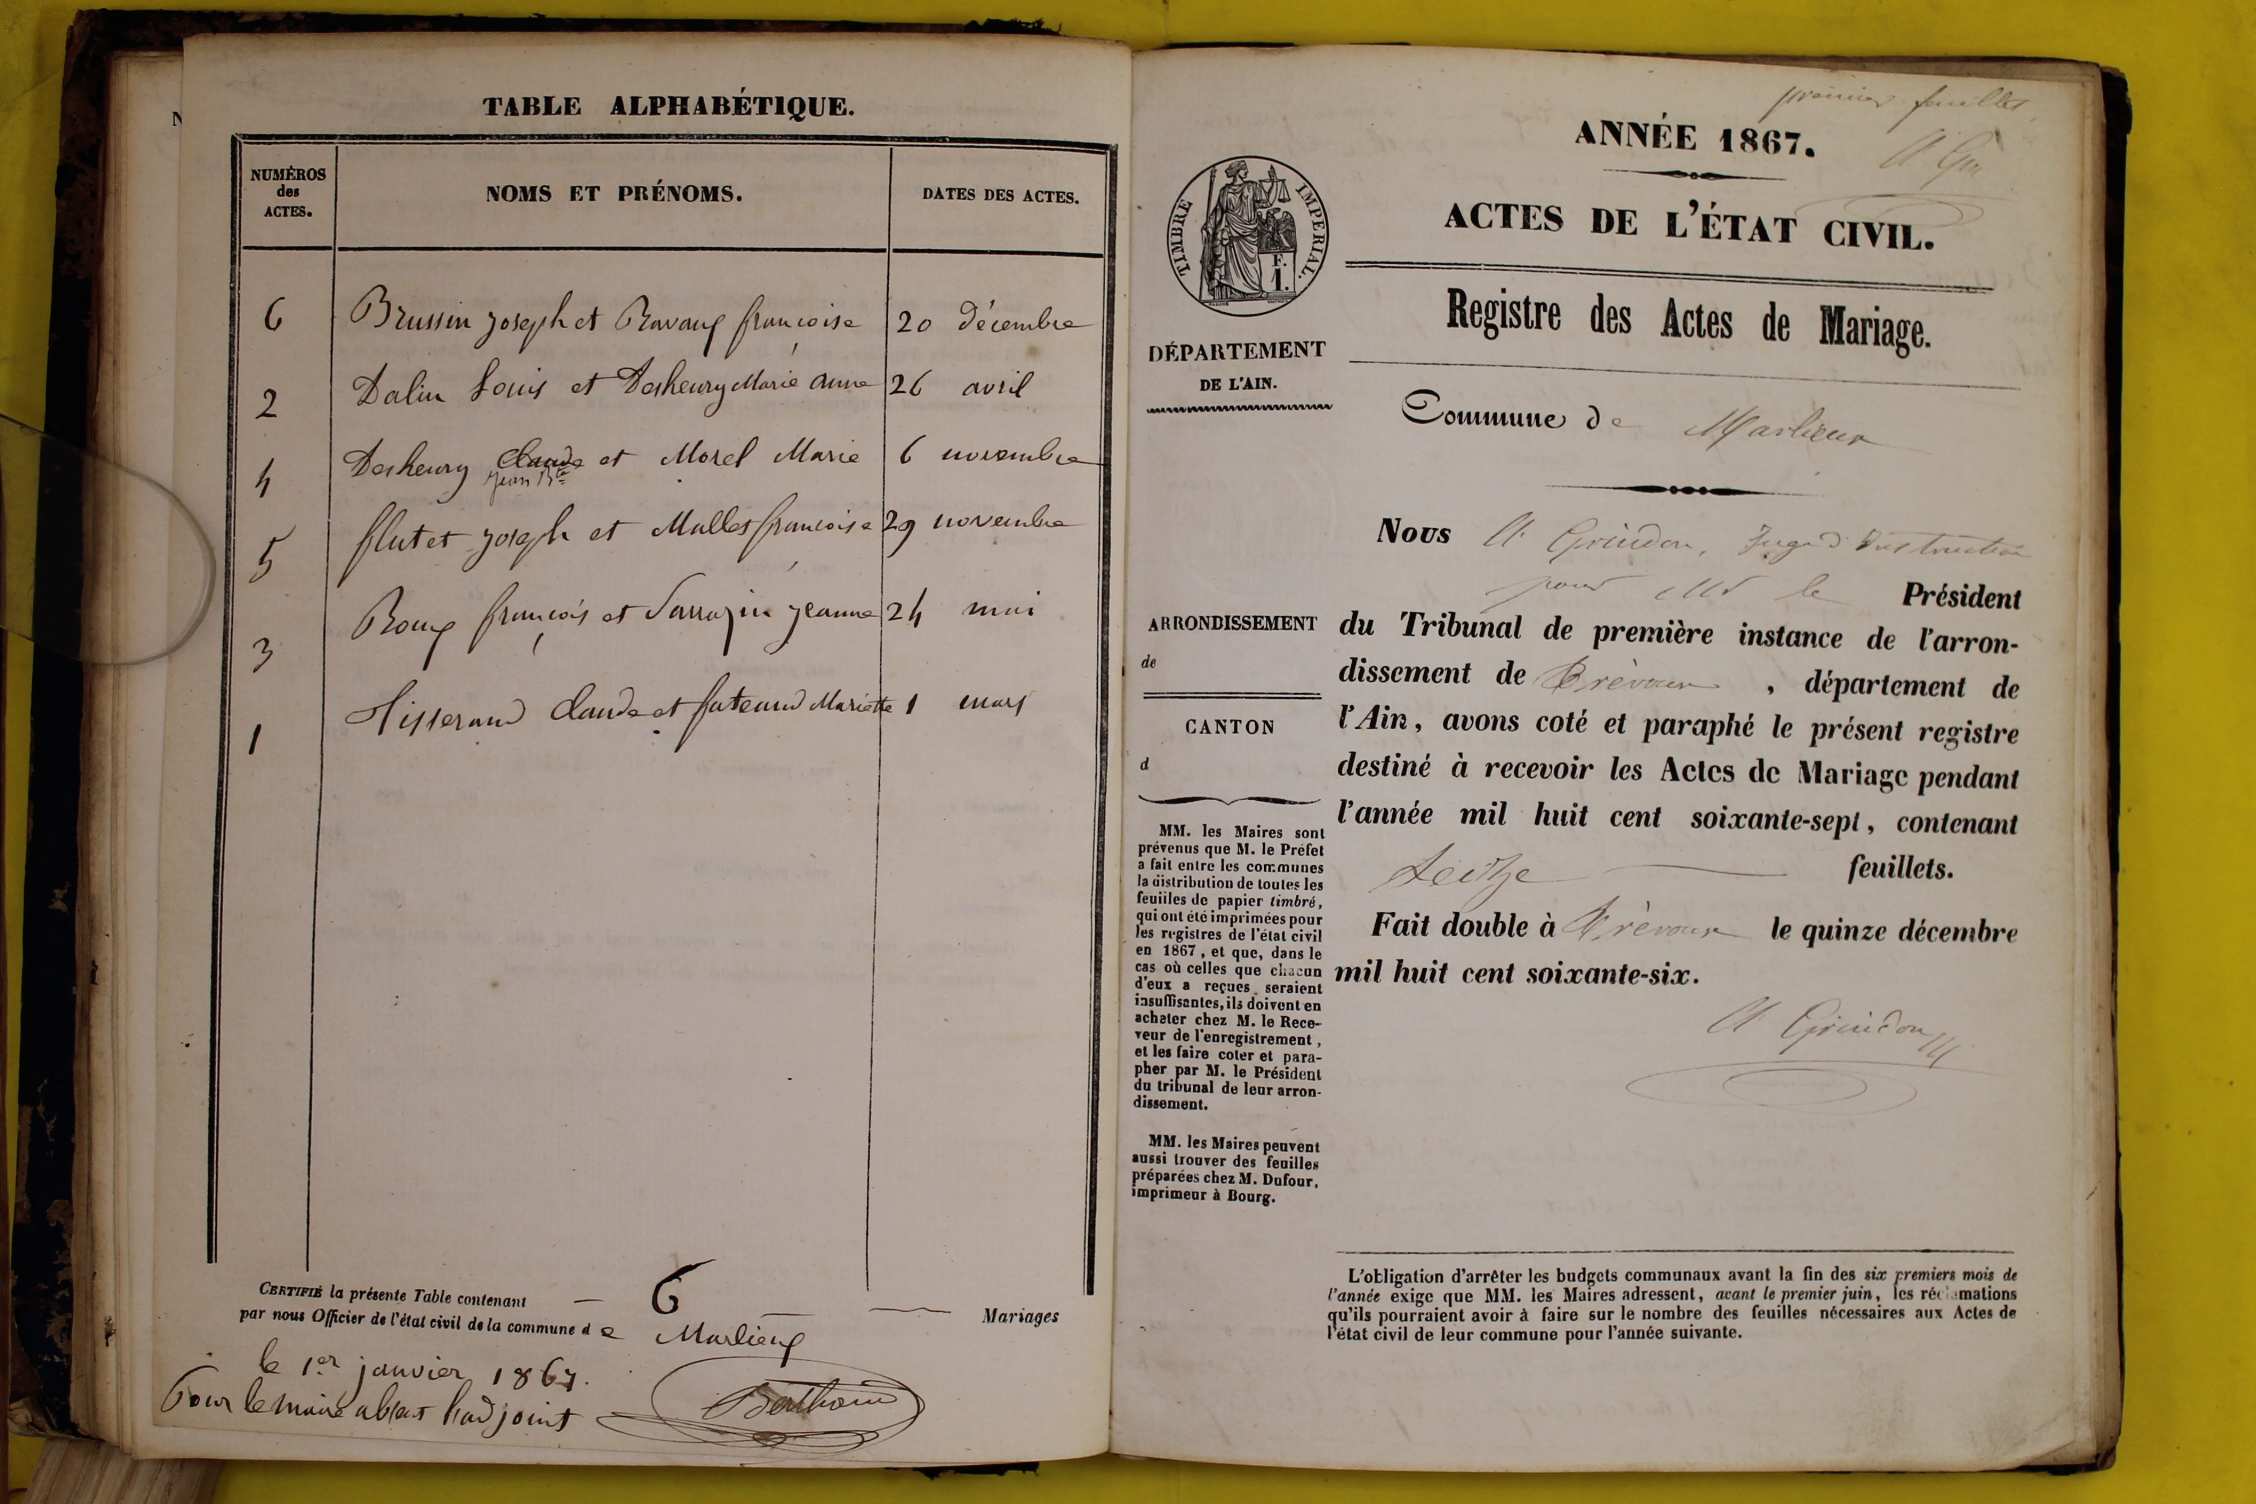 TABLE ALPHABÉTIQUE.
NUMÉROS
des
ACTES.
NOMS ET PRÉNOMS.
DATES DES ACTES.
6 Brussin joseph et Ravaux françoise 20 décembre
2 Dalin Louis et Desheury Marie anne 26 avril
4 Desheury Claude et Morel Marie 6 novembre
jean Bte
5 flutet joseph et Mallet françoise 29 novembre
3 Roux françois et Sarrazin jeanne 24 mai
1 Tisserand Claude et Mariette 1 mars
CERTIFIÉ la présente Table contenant — 6 — Mariages
par nous Officier de l'état civil de la commune de Marlieux
le 1er janvier 1867.
Pour le maire absent l'adjoint
premier feuillet
ANNÉE 1867.
ACTES DE L'ÉTAT CIVIL.
TIMBRE IMPERIAL.
F.
1.
Registre des Actes de Mariage.
DÉPARTEMENT
DE L'AIN.
Commune de Marlieux
Nous Grindon, Juge d'Instruction
pour le Président
du Tribunal de première instance de l'arron-
dissement de Trévoux, département de
l'Ain, avons coté et paraphé le présent registre
destiné à recevoir les Actes de Mariage pendant
l'année mil huit cent soixante-sept, contenant
Seize feuillets.
Fait double à Trévoux le quinze décembre
mil huit cent soixante-six.
Grindon
ARRONDISSEMENT
de
CANTON
d
MM. les Maires sont
prévenus que M. le Préfet
a fait entre les communes
la distribution de toutes les
feuilles de papier timbré,
qui ont été imprimées pour
les registres de l'état civil
en 1867, et que, dans le
cas où celles que chacun
d'eux a reçues seraient
insuffisantes, ils doivent en
acheter chez M. le Rece-
veur de l'enregistrement,
et les faire coter et para-
pher par M. le Président
du tribunal de leur arron-
dissement.
MM. les Maires peuvent
aussi trouver des feuilles
préparées chez M. Dufour,
imprimeur à Bourg.
L'obligation d'arrêter les budgets communaux avant la fin des six premiers mois de
l'année exige que MM. les Maires adressent, avant le premier juin, les réclamations
qu'ils pourraient avoir à faire sur le nombre des feuilles nécessaires aux Actes de
l'état civil de leur commune pour l'année suivante.